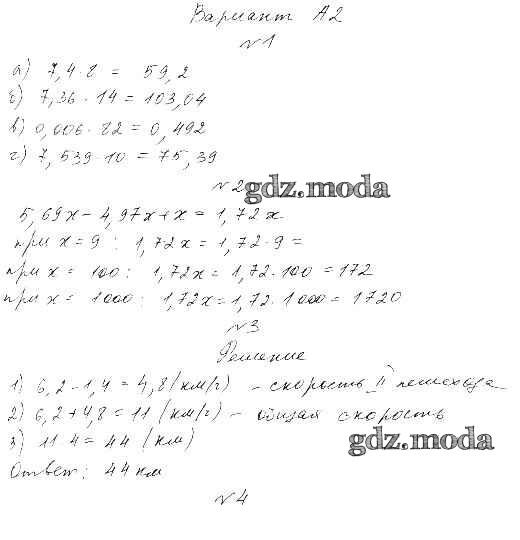 Вариант А2
№1
а) 7,4·8 = 59,2
б) 7,36·14 = 103,04
в) 0,006·82 = 0,492
г) 7,539·10 = 75,39
№2
gdz.moda
5,69х - 4,97х + х = 1,72х.
при х = 9: 1,72х = 1,72·9 =
при х = 100: 1,72х = 1,72·100 = 172
при х = 1000: 1,72х = 1,72·1000 = 1720
№3
Решение
1) 6,2 - 1,4 = 4,8 (км/ч) - скорость II пешехода
2) 6,2 + 4,8 = 11 (км/ч) - общая скорость
3) 11·4 = 44 (км)
gdz.moda
Ответ: 44 км
№4